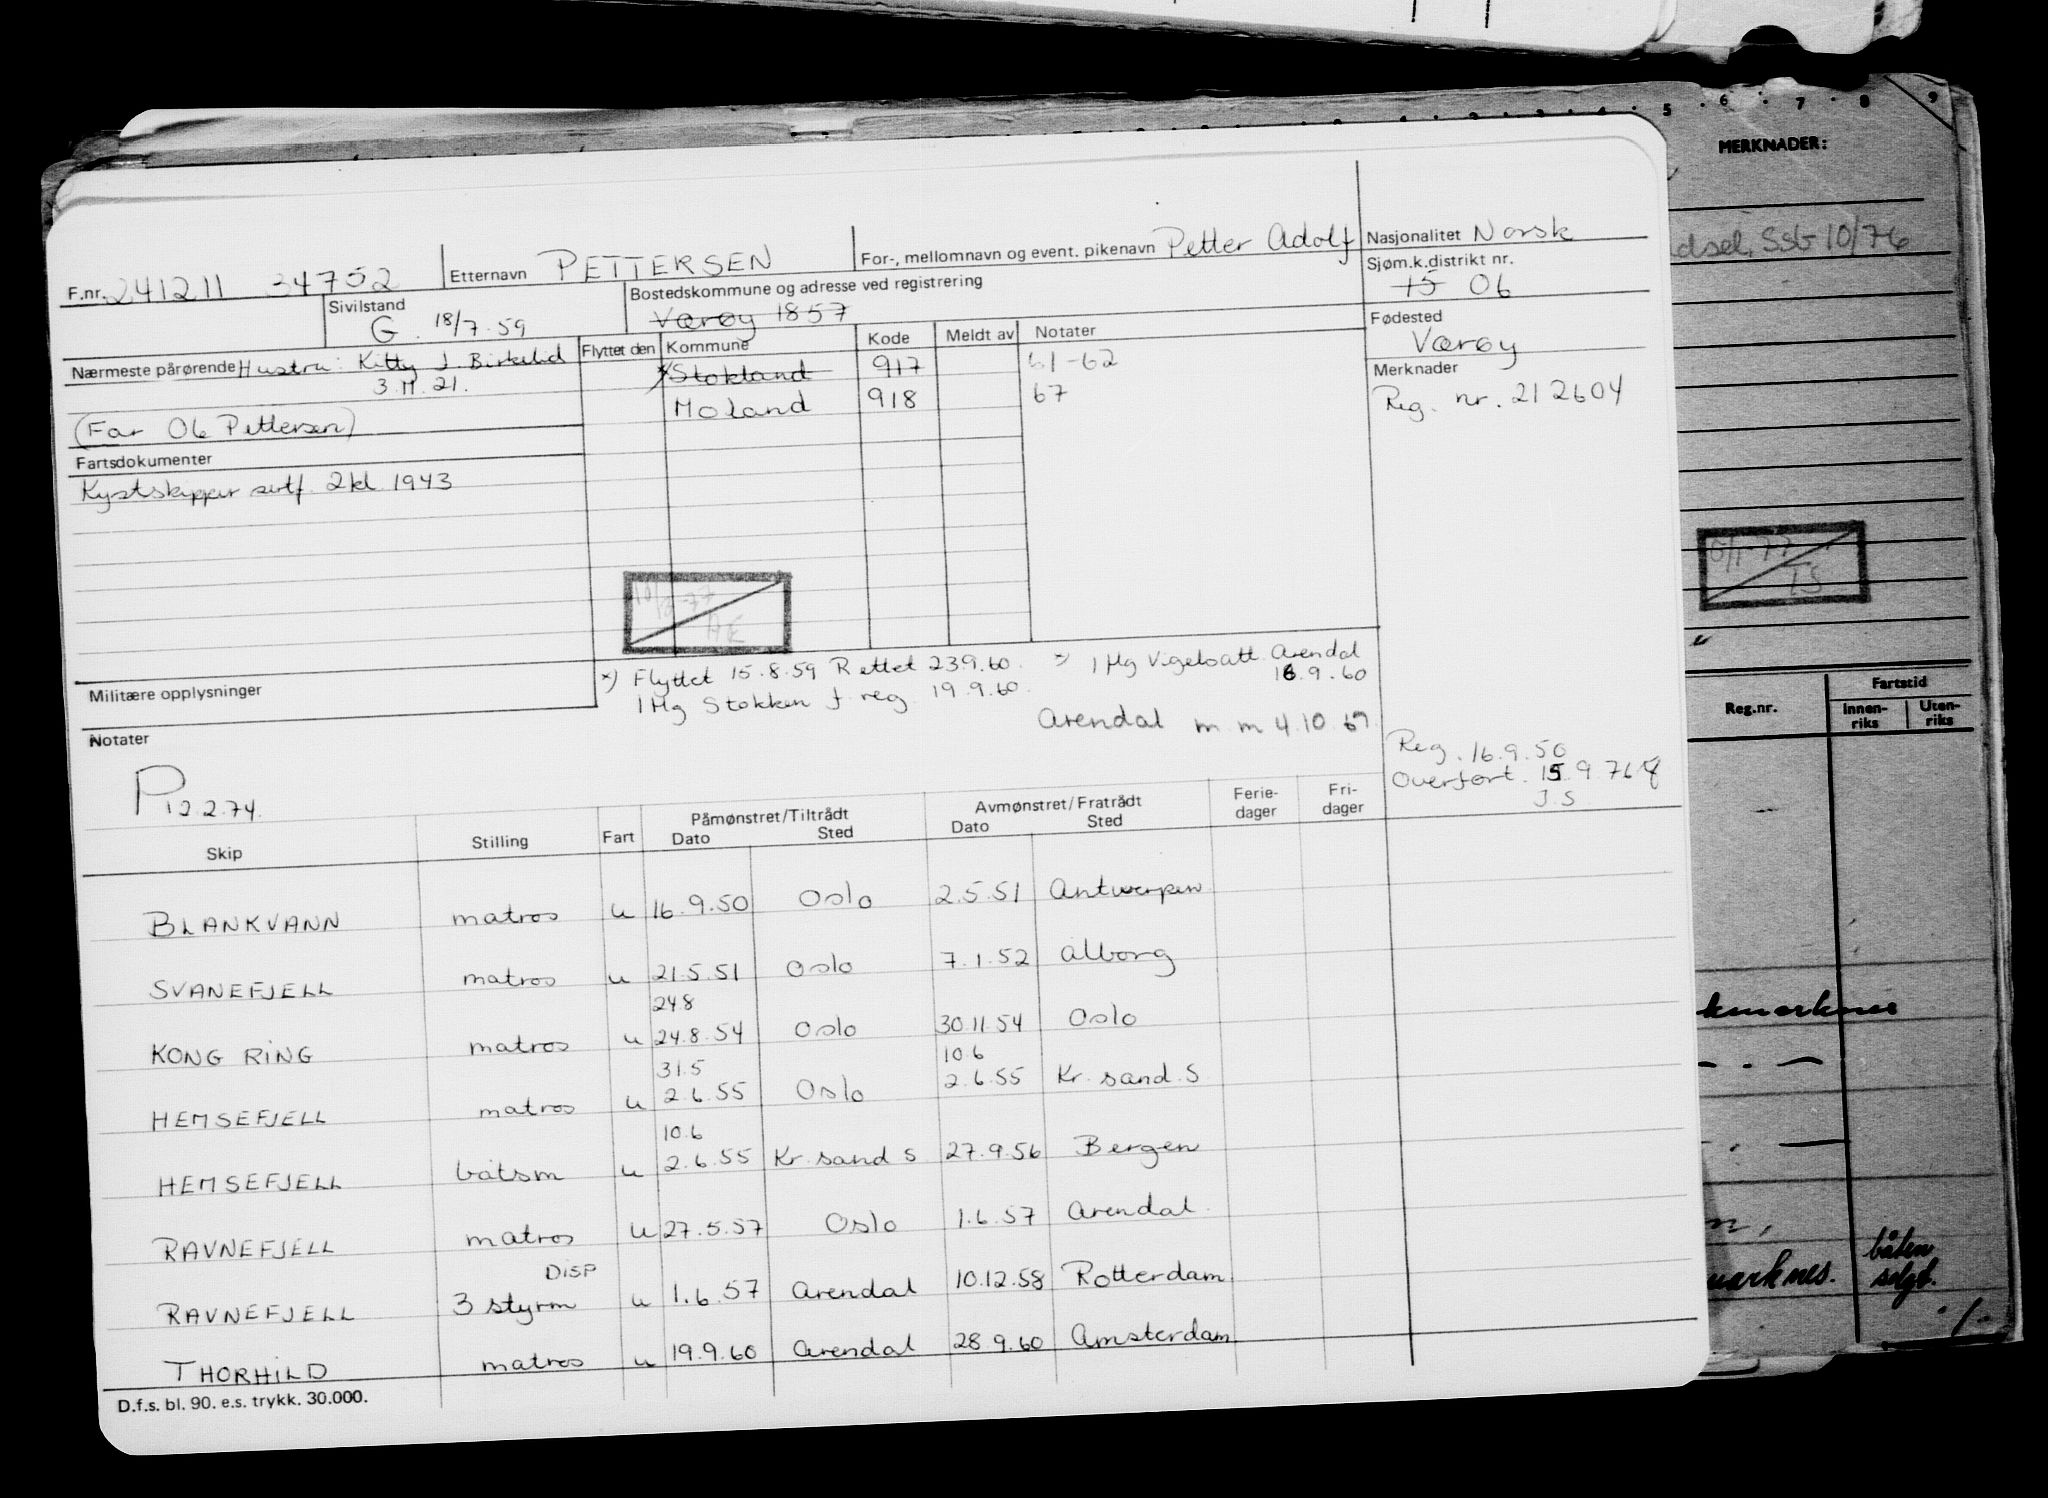 MERKNADER:
Ssb 10/76
F.nr. 241211 34752
Etternavn PETTERSEN
For-, mellomnavn og event. pikenavn Petter Adolf
Nasjonalitet Norsk
Sjøm.k.distrikt nr.
15 06
Sivilstand
G. 18/7.59
Bostedskommune og adresse ved registrering
Værøy 1857
Fødested
Værøy
Nærmeste pårørende Hustru: Kitty J. Birkelid
3.11.21.
(Far Ole Pettersen)
Flyttet den Kommune Kode Meldt av Notater
x Stokland 917 61-62
Moland 918 67
Merknader
Reg. nr. 212604
Fartsdokumenter
Kystskipper sertf. 2kl 1943
Militære opplysninger
x) Flyttet 15.8.59 Rettet 23.9.60.
1 Mg Stokken f. reg. 19.9.60.
1 Mg Vigelsatt. Arendal
16.9.60
Arendal m m 4.10.67
Notater
P 12.2.74.
Reg. 16.9.50
Overført. 15.9.76
J.S
Skip Stilling Fart Påmønstret/Tiltrådt Dato Sted Avmønstret/Fratrådt Dato Sted Ferie-dager Fri-dager
BLANKVANN matros u 16.9.50 Oslo 2.5.51 Antwerpen
SVANEFJELL matros u 21.5.51 Oslo 7.1.52 Ålborg
24.8
KONG RING matros u 24.8.54 Oslo 30.11.54 Oslo
31.5 10.6
HEMSEFJELL matros u 2.6.55 Oslo 2.6.55 Kr. sand. S
10.6
HEMSEFJELL båtsm u 2.6.55 Kr. sand S 27.9.56 Bergen
RAVNEFJELL matros u 27.5.57 Oslo 1.6.57 Arendal
DISP
RAVNEFJELL 3 styrm u 1.6.57 Arendal 10.12.58 Rotterdam
THORHILD matros u 19.9.60 Arendal 28.9.60 Amsterdam
D.f.s. bl. 90. e.s. trykk. 30.000.
TS
Reg.nr.
Fartstid
Innen-riks Uten-riks
båten
solgt.